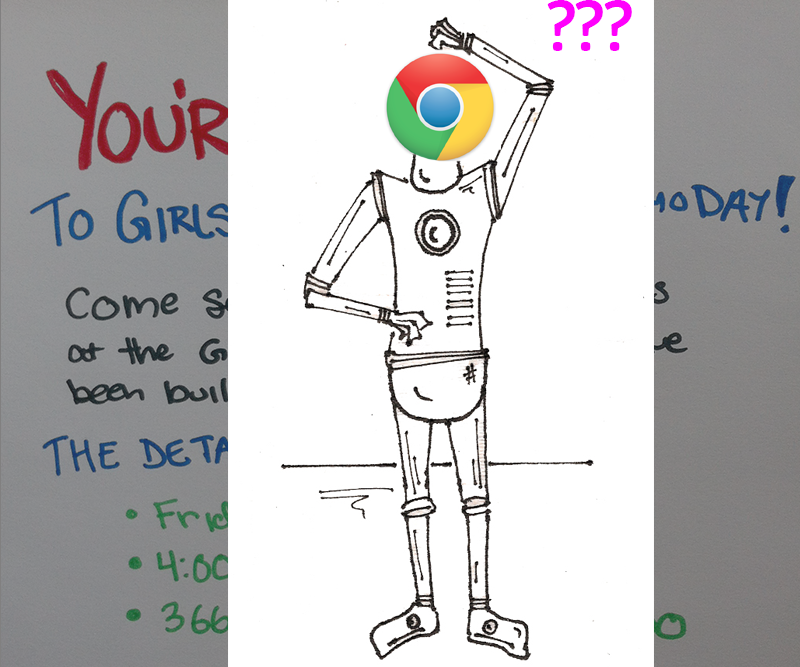 ???
YOU'R
TO GIRLS MODAY!
Come s
at the G e
been buil
THE DETA
#
• Frid
• 4:00
• 366 o